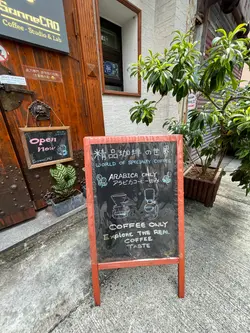 SanneCAO
Coffee - Studio & Lab
Open
Now
精品咖啡的世界
WORLD OF SPECIALTY COFFEE
ARABICA ONLY
アラビカコーヒーのみ
COFFEE ONLY
EXPLORE THE REAL
COFFEE
TASTE